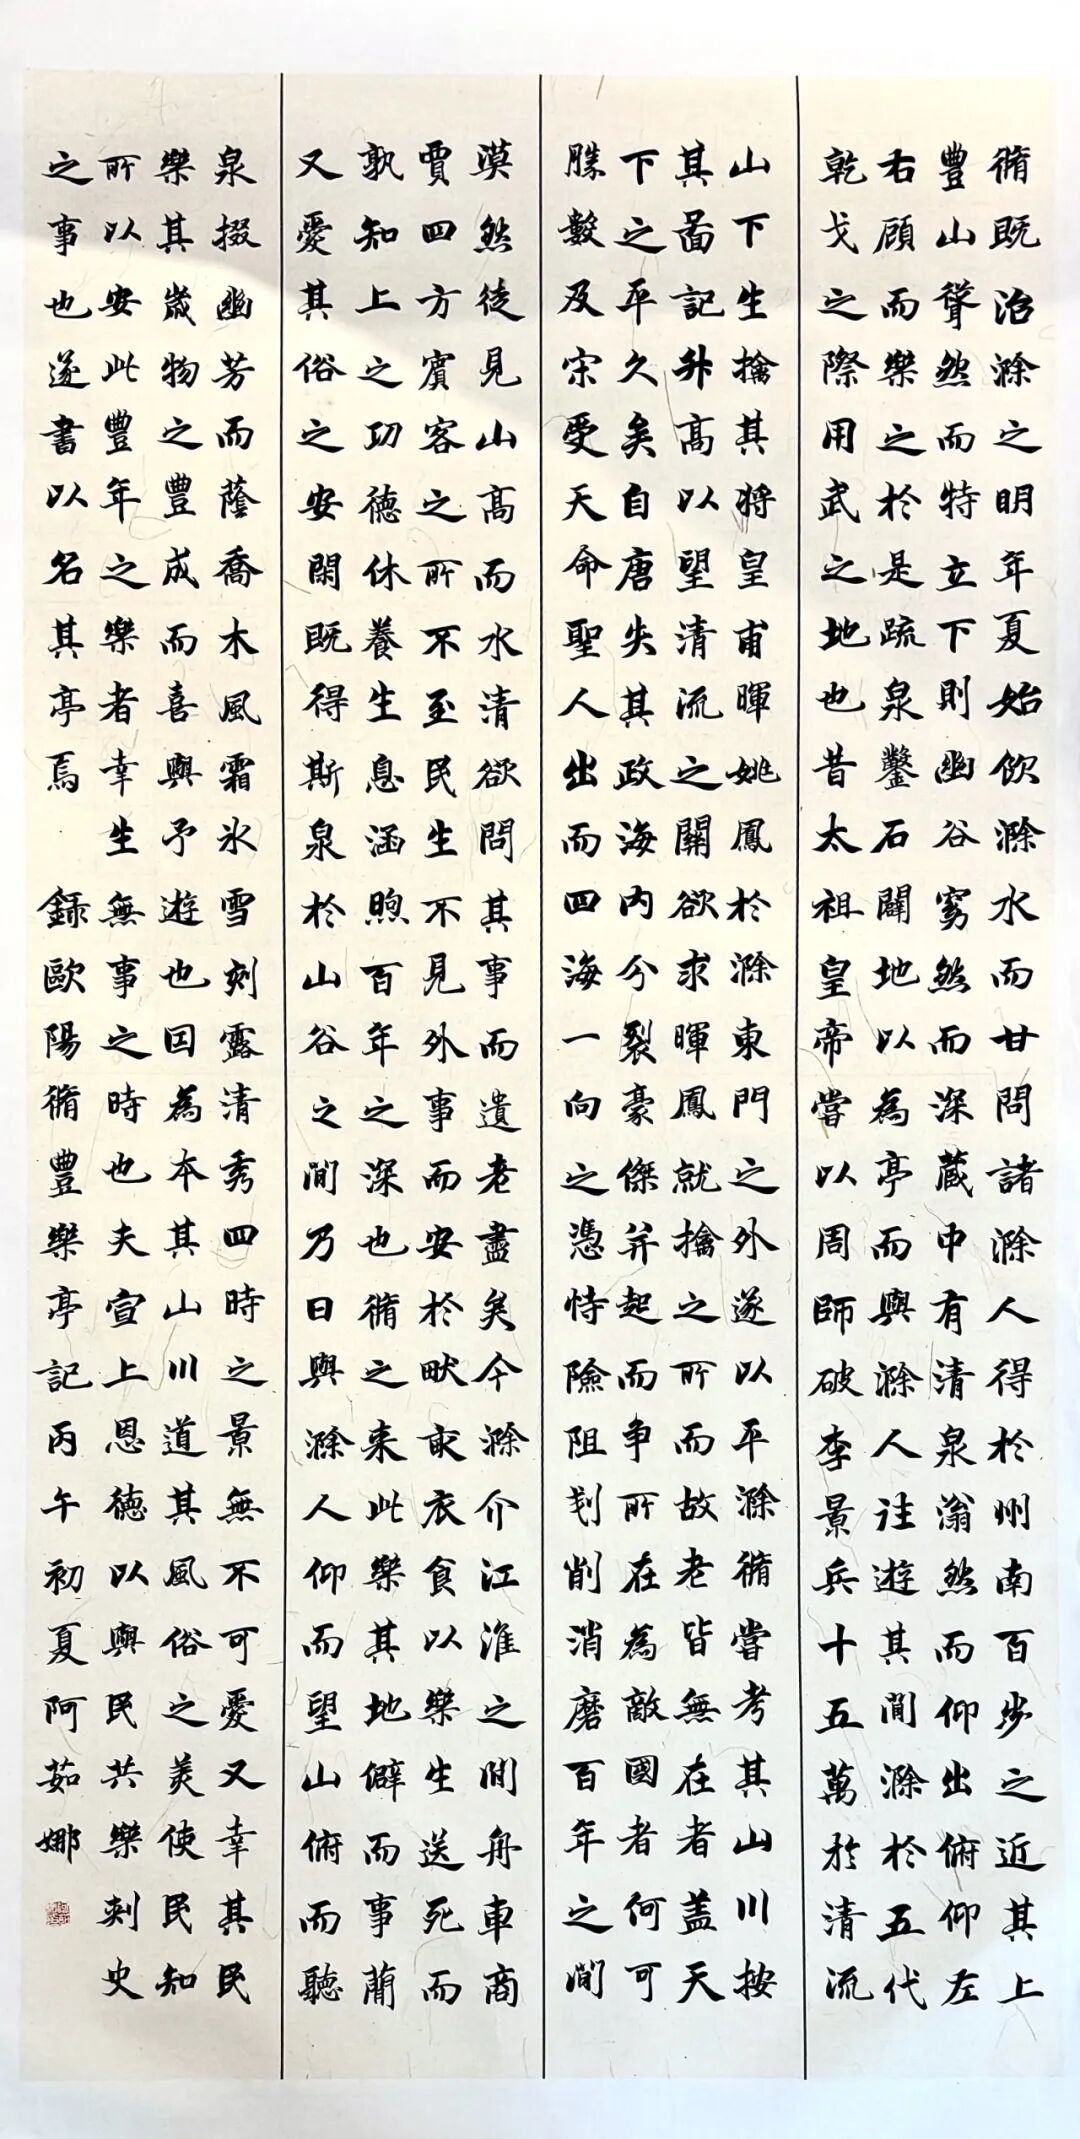 脩既治滁之明年夏始飲滁水而甘問諸滁人得於州南百步之近其上
豐山聳然而特立下則幽谷窈然而深藏中有清泉滃然而仰出俯仰左
右顧而樂之於是疏泉鑿石闢地以為亭而與滁人往遊其間滁於五代
乾戈之際用武之地也昔太祖皇帝嘗以周師破李景兵十五萬於清流
山下生擒其將皇甫暉姚鳳於滁東門之外遂以平滁脩嘗考其山川按
其圖記升高以望清流之關欲求暉鳳就擒之所而故老皆無在者蓋天
下之平久矣自唐失其政海內分裂豪傑并起而爭所在為敵國者何可
勝數及宋受天命聖人出而四海一向之憑恃險阻剗削消磨百年之間
漠然徒見山高而水清欲問其事而遺老盡矣今滁介江淮之間舟車商
賈四方賓客之所不至民生不見外事而安於畎畝衣食以樂生送死而
孰知上之功德休養生息涵煦百年之深也脩之來此樂其地僻而事簡
又愛其俗之安閑既得斯泉於山谷之間乃日與滁人仰而望山俯而聽
泉掇幽芳而蔭喬木風霜冰雪刻露清秀四時之景無不可愛又幸其民
樂其歲物之豐成而喜與予遊也因為本其山川道其風俗之美使民知
所以安此豐年之樂者幸生無事之時也夫宣上恩德以與民共樂刺史
之事也遂書以名其亭焉 錄歐陽脩豐樂亭記丙午初夏阿茹娜